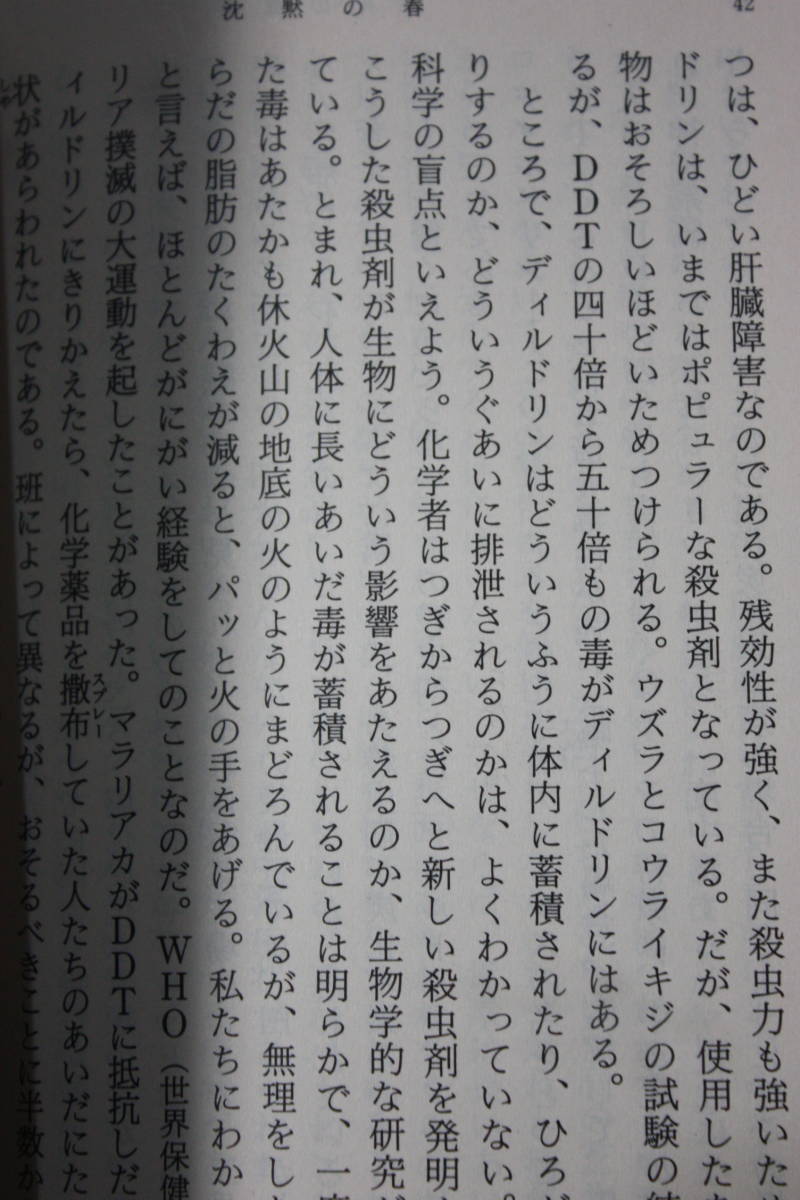 沈黙の春
42
つは、ひどい肝臓障害なのである。残効性が強く、また殺虫力も強いた
ドリンは、いまではポピュラーな殺虫剤となっている。だが、使用した
物はおそろしいほどいためつけられる。ウズラとコウライキジの試験の
るが、DDTの四十倍から五十倍もの毒がディルドリンにはある。
ところで、ディルドリンはどういうふうに体内に蓄積されたり、ひろが
りするのか、どういうぐあいに排泄されるのかは、よくわかっていない。
科学の盲点といえよう。化学者はつぎからつぎへと新しい殺虫剤を発明
こうした殺虫剤が生物にどういう影響をあたえるのか、生物学的な研究が
ている。とまれ、人体に長いあいだ毒が蓄積されることは明らかで、一
た毒はあたかも休火山の地底の火のようにまどろんでいるが、無理をし
らだの脂肪のたくわえが減ると、パッと火の手をあげる。私たちにわか
と言えば、ほとんどがにがい経験をしてのことなのだ。WHO（世界保健
リア撲滅の大運動を起したことがあった。マラリアカがDDTに抵抗しだ
ィルドリンにきりかえたら、化学薬品を撒布していた人たちのあいだにた
スプレー
状があらわれたのである。班によって異なるが、おそるべきことに半数か